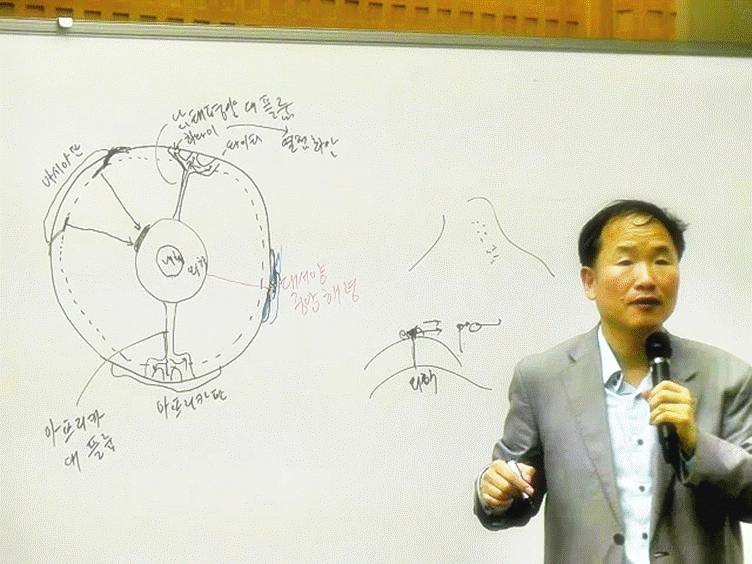 남태평양 대 플룸
하와이
열점 화산
아시아판
내핵
외핵
대서양
중앙 해령
외핵
아프리카판
아프리카
대 플룸